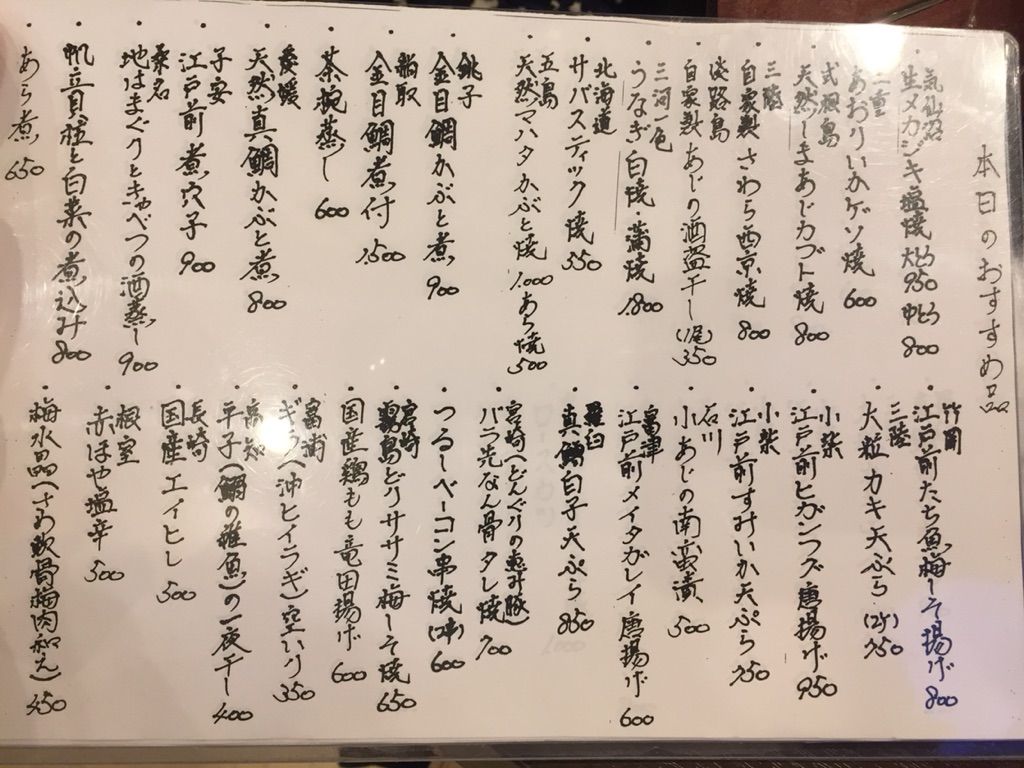 本日のおすすめ品
・気仙沼 生メカジキ塩焼 大とろ950 中とろ800
・三重 あおりいかゲソ焼 600
・式根島 天然しまあじカブト焼 800
・三陸 自家製さわら西京焼 800
・淡路島 自家製あじの酒盗干し(1尾)350
・三河一色 うなぎ白焼・蒲焼 1.800
・北海道 サバスティック焼 550
・五島 天然マハタかぶと焼 1.000 あら焼500
・銚子 金目鯛かぶと煮 900
・船取 金目鯛煮付 1.500
・茶椀蒸し 600
・愛媛 天然真鯛かぶと煮 800
・子安 江戸前煮穴子 900
・桑名 地はまぐりときゃべつの酒蒸し 900
・帆立貝柱と白菜の煮込み 800
・あら煮 650
・竹岡 江戸前たち魚梅しそ揚げ 800
・三陸 大粒カキ天ぷら(2ケ)750
・小柴 江戸前ヒガンフグ唐揚げ 950
・小柴 江戸前すみいか天ぷら 750
・石川 小あじの南蛮漬 500
・富津 江戸前メイタガレイ唐揚げ 600
・羅臼 真鱈白子天ぷら 850
・宮崎(どんぐりの恵み豚) バラ先なん骨タレ焼 700
・つるしベーコン串焼(2本)600
・宮崎 霧島どりササミ梅しそ焼 650
・国産鶏もも竜田揚げ 600
・富浦 ギラ(沖ヒイラギ)空いり 350
・高知 平子(鯛の稚魚)の一夜干し 400
・長崎 国産エイヒレ 500
・根室 赤ほや塩辛 500
・梅水晶(さめ軟骨梅肉和え)450